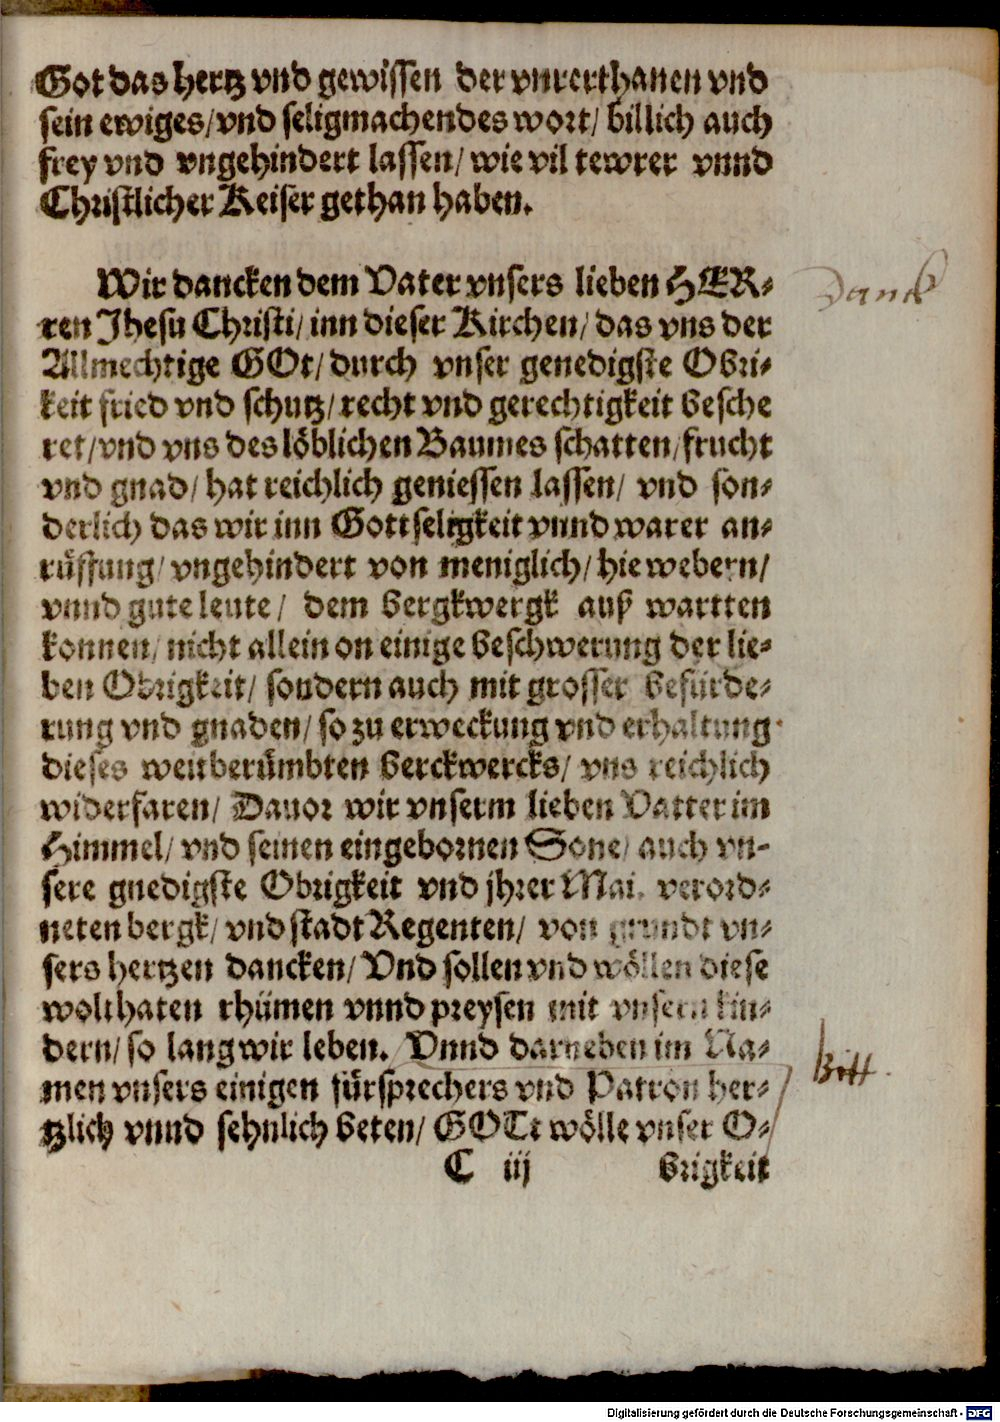 Got das hertz vnd gewissen der vnterthanen vnd
sein ewiges/vnd seligmachendes wort/ billich auch
frey vnd vngehindert lassen/ wie vil tewrer vnnd
Christlicher Keiser gethan haben.
Wir dancken dem Vater vnsers lieben HER-
ren Jhesu Christi/ inn dieser Kirchen/ das vns der
Allmechtige GOt/ durch vnser genedigste Obri-
keit fried vnd schutz/ recht vnd gerechtigkeit besche
ret/ vnd vns des löblichen Baumes schatten/ frucht
vnd gnad/ hat reichlich geniessen lassen/ vnd son-
derlich das wir inn Gottseligkeit vnnd warer an-
rüffung/ vngehindert von meniglich/ hie webern/
vnnd gute leute/ dem bergkwergk auß wartten
konnen/ nicht allein on einige beschwerung der lie-
ben Obrigkeit/ sondern auch mit grosser befürde-
rung vnd gnaden/ so zu erweckung vnd erhaltung
dieses weitberümbten berckwercks/ vns reichlich
widerfaren/ Dauor wir vnserm lieben Vatter im
Himmel/ vnd seinen eingebornen Sone/ auch vn-
sere gnedigste Obrigkeit vnd jhrer Mai. verord-
neten bergk/ vnd stadt Regenten/ von grundt vn-
sers hertzen dancken/ Vnd sollen vnd wöllen diese
wolthaten rhümen vnnd preysen mit vnsern kin-
dern/ so lang wir leben. Vnnd darneben im Na-
men vnsers einigen fürsprechers vnd Patron her-
tzlich vnnd sehnlich beten/ GOTt wölle vnser O-
C iij brigkeit
Danck
bitt.
Digitalisierung gefördert durch die Deutsche Forschungsgemeinschaft - DFG